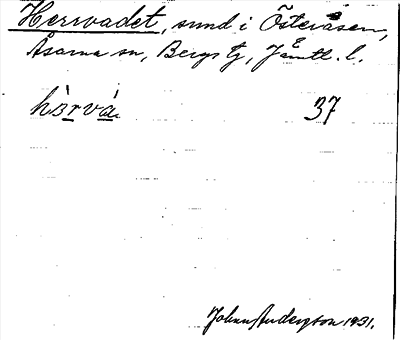 Herrvadet, sund i Österåsen,
Åsarna sn, Bergs tg, Jämtl. l.
hàrvá. 37
Johan Anderzon 1931.